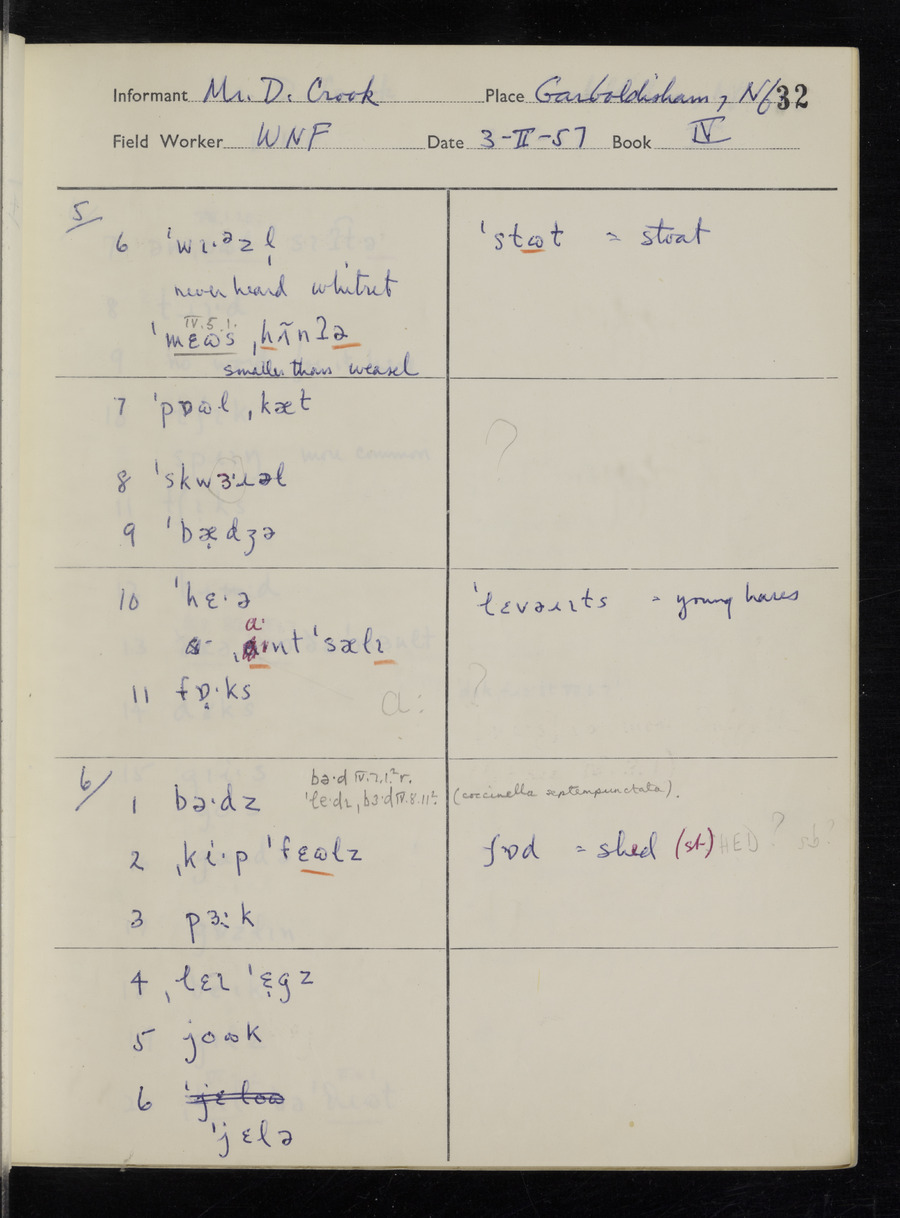 Informant Mr. D. Crook Place Garboldisham, Nf 32
Field Worker WNF Date 3-II-57 Book IV
5/
6 ˈwɪ·ᵊzl̩ ˈstɷt = stoat
never heard whitret
IV.5.1.
ˈmɛɷs ˌhɪ̃nʔə
smaller than weasel
7 ˈpɒɷl ˌkæt
?
8 ˈskwɜ·ɹəl
9 ˈbæ̣dʒə
10 ˈhɛ·ə ˈlɛvəɹɪts = young hares
a·
ˌ nt ˈsælɪ
11 fɒ̣·ks a: ?
6/
bə·d IV.7.1.² r.
1 bə·dz ˈle·dɪ ˌbɜ·d IV.8.11² (coccinella septempunctata).
2 ˌki·p ˈfɛɷlz ʃɒd = shed (st) HED? sb?
3 pɜːk
4 ˌlɛɪ ˈɛ̣gz
5 joɷk
6 ˈjɛloɷ
ˈjɛlə